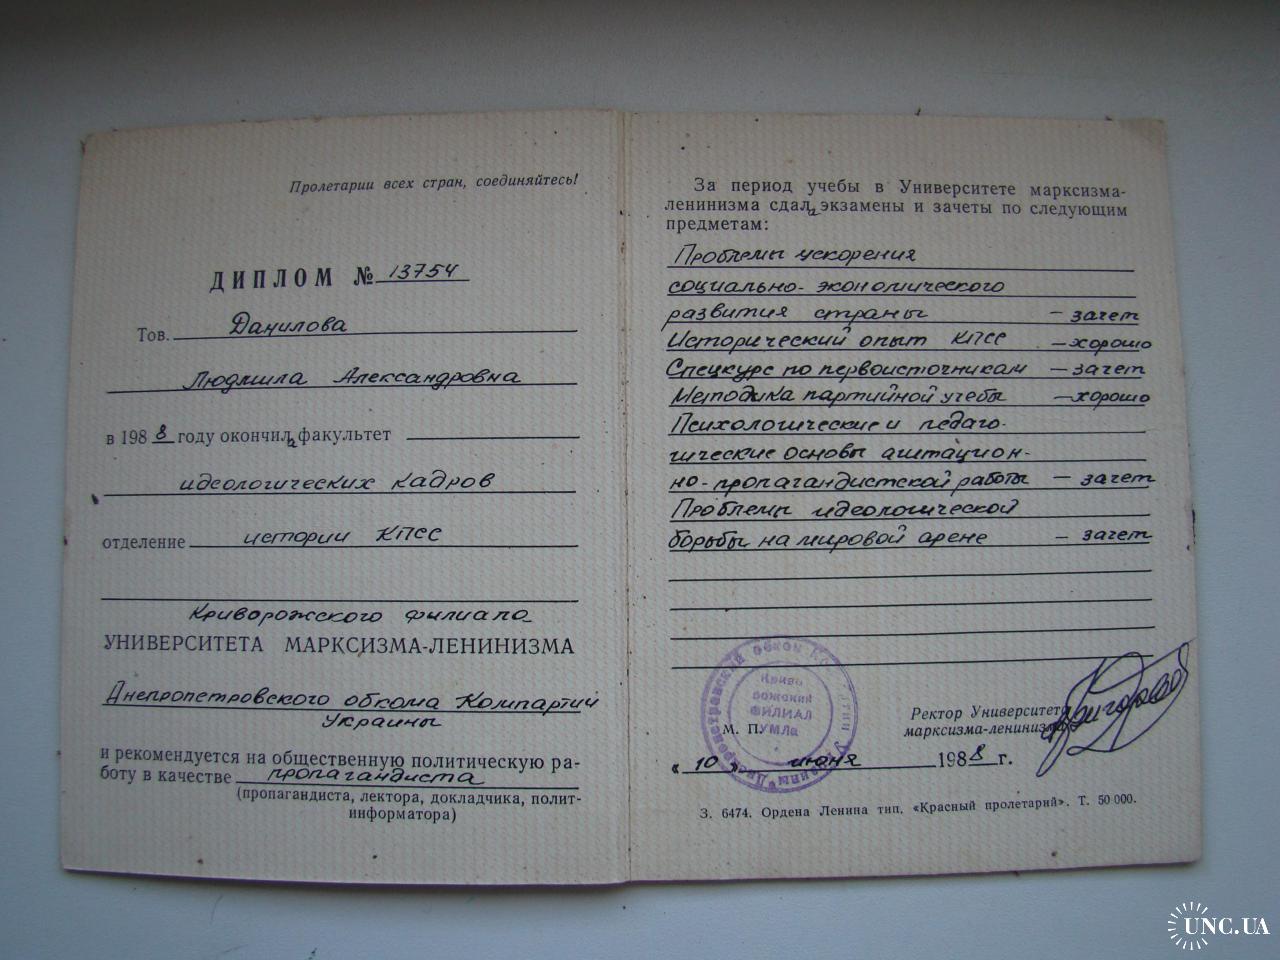 Пролетарии всех стран, соединяйтесь!
ДИПЛОМ № 13754
Тов. Данилова
Людмила Александровна
в 1988 году окончила факультет
идеологических кадров
отделение истории КПСС
Криворожского филиала
УНИВЕРСИТЕТА МАРКСИЗМА-ЛЕНИНИЗМА
Днепропетровского обкома Компартии
Украины
и рекомендуется на общественную политическую ра-
боту в качестве пропагандиста
(пропагандиста, лектора, докладчика, полит-
информатора)
За период учебы в Университете марксизма-
ленинизма сдала экзамены и зачеты по следующим
предметам:
Проблемы ускорения
социально-экономического
развития страны — зачет
Исторический опыт КПСС — хорошо
Спецкурс по первоисточникам — зачет
Методика партийной учебы — хорошо
Психологические и педаго-
гические основы агитацион-
но-пропагандистской работы — зачет
Проблемы идеологической
борьбы на мировой арене — зачет
Криво
рожский
ФИЛИАЛ
УМЛа
М. П.
Ректор Университета
марксизма-ленинизма
«10» июня 1988 г.
З. 6474. Ордена Ленина тип. «Красный пролетарий». Т. 50 000.
UNC.UA